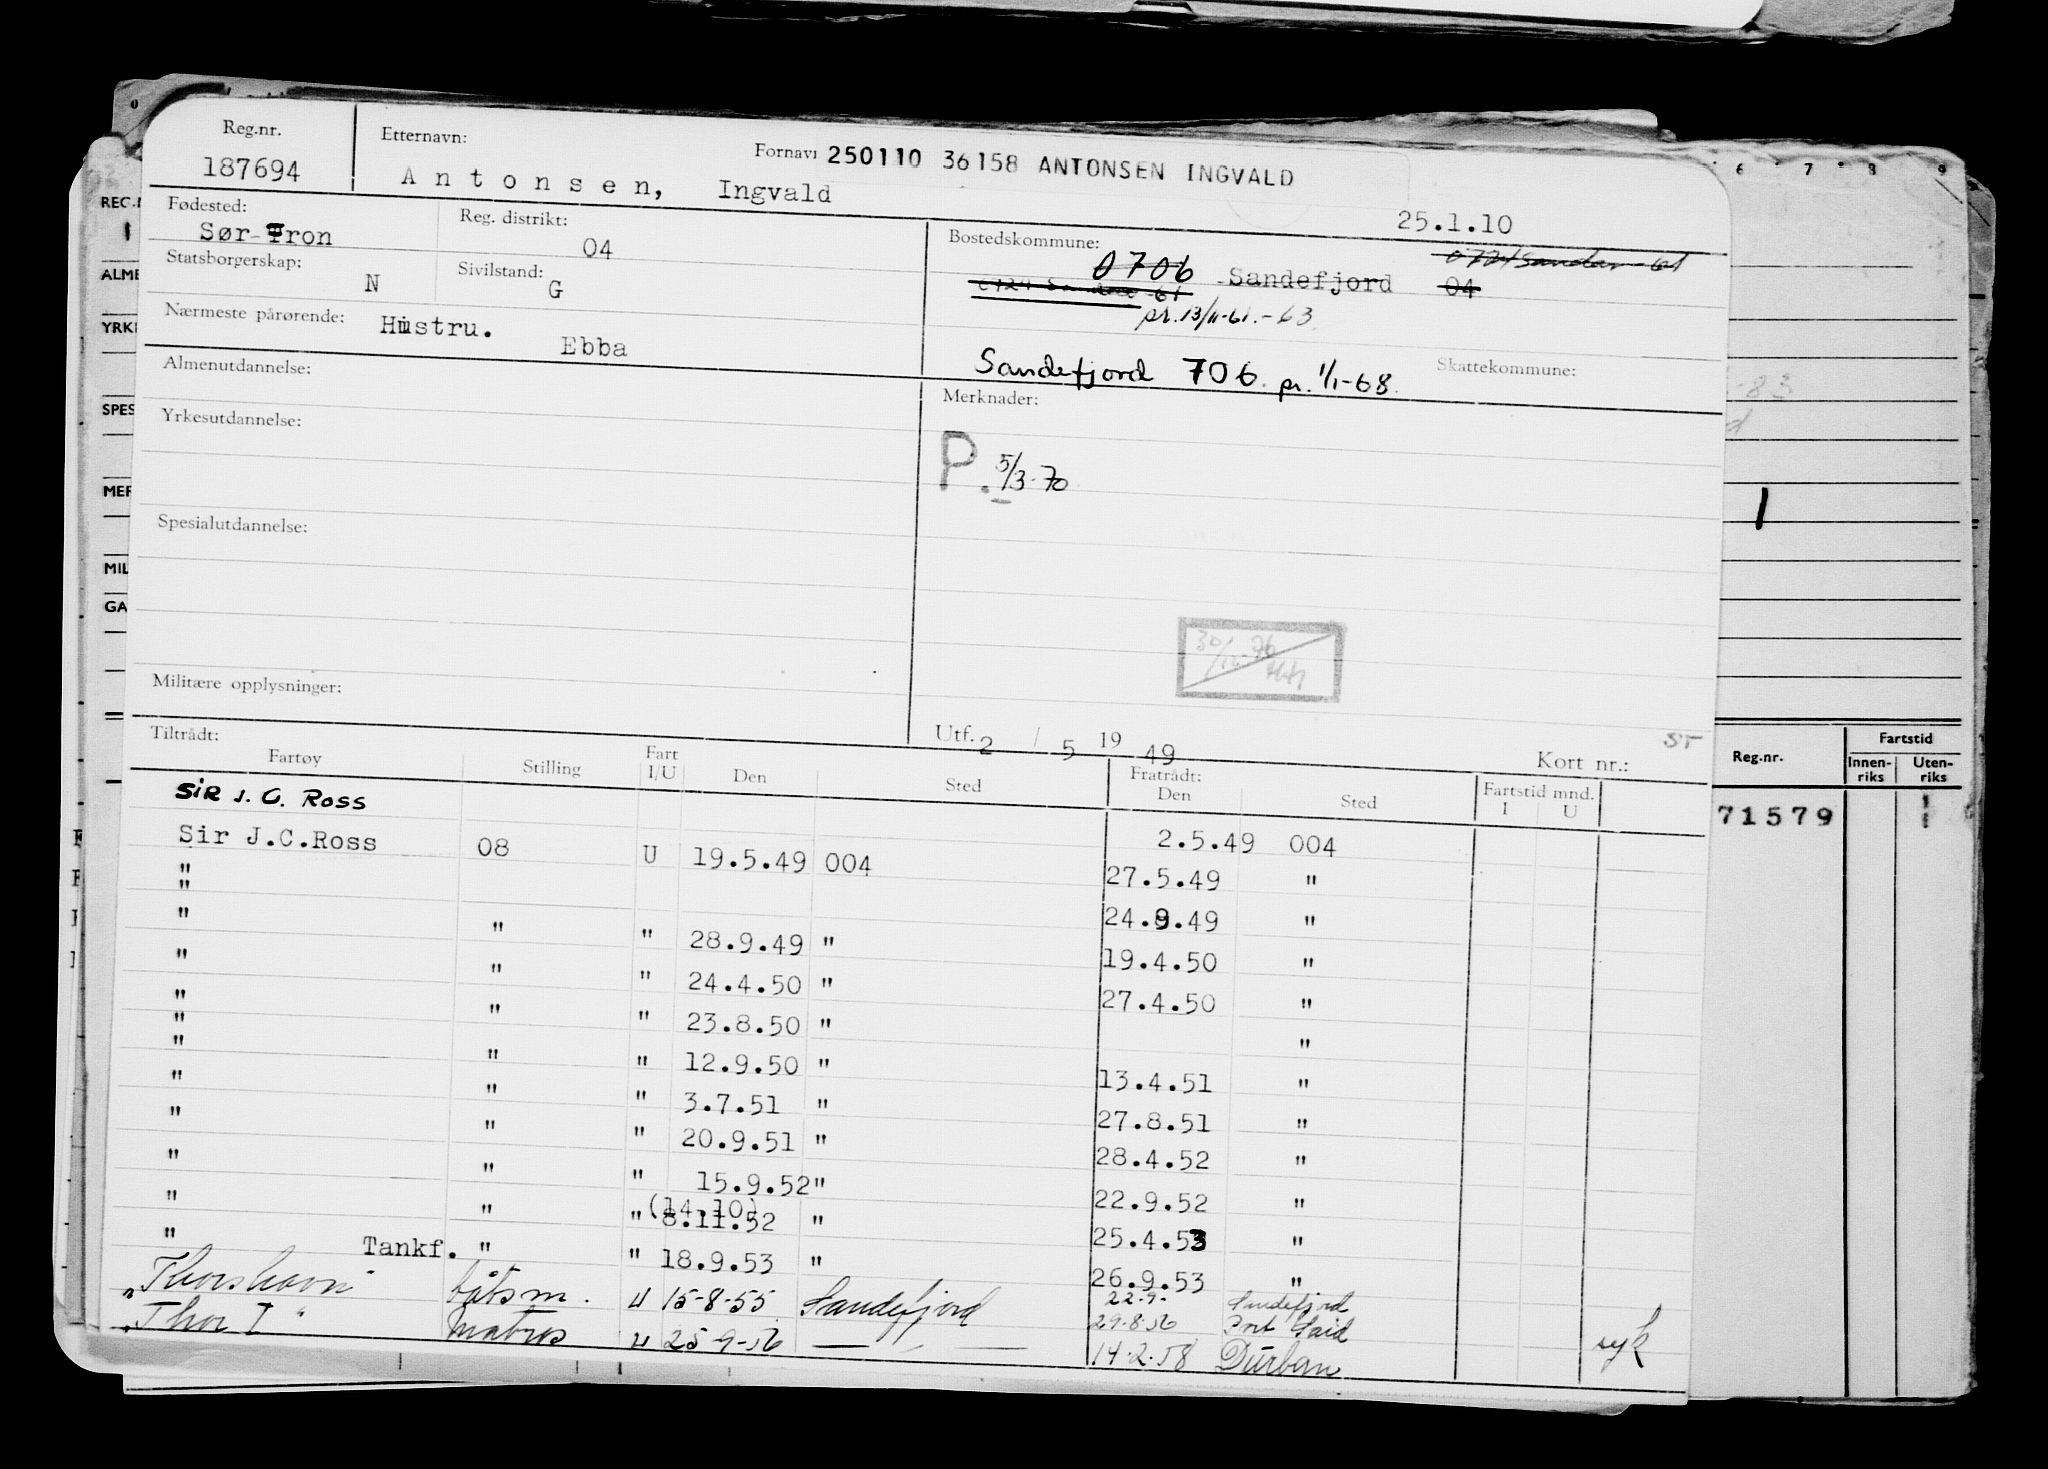 Reg.nr. Etternavn: Fornavn 250110 36158 ANTONSEN INGVALD
187694 Antonsen, Ingvald 25.1.10
Fødested: Reg. distrikt: Bostedskommune: 0724 Sandar - 61
Sør-Fron 04 0706 - Sandefjord 04
Statsborgerskap: Sivilstand: 0724 Sandar - 61
N G pr. 13/11-61.-63
Nærmeste pårørende: Hustru.
Ebba
Almenutdannelse: Sandefjord 706. pr. 1/1-68. Skattekommune:
Yrkesutdannelse: Merknader:
P. 5/3-70
Spesialutdannelse:
30/12-76
Militære opplysninger:
Utf. 2 / 5 19 49 Kort nr.:
Tiltrådt: Fartøy Stilling Fart I/U Den Sted Fratrådt: Den Sted Fartstid mnd. I U
SIR J. C. ROSS
2.5.49 004
Sir J.C.Ross 08 U 19.5.49 004 27.5.49 "
" 24.9.49 "
" " " 28.9.49 " 19.4.50 "
" " " 24.4.50 " 27.4.50 "
" " " 23.8.50 " "
" " " 12.9.50 " 13.4.51 "
" " " 3.7.51 " 27.8.51 "
" " " 20.9.51 " 28.4.52 "
" " " 15.9.52 " 22.9.52 "
(14.10)
" " " 8.11.52 " 25.4.53 "
" Tankf. " " 18.9.53 " 26.9.53 "
22-9- Sandefjord
"Thorshavn" båtsm. U 15-8-55 Sandefjord 29-8-56 Port Said
"Thor I" Matros U 25-9-56 — " — 14-2-58 Durban syk
REG.N
ALME
YRKE
SPES
MER
MIL
GA
6 7 8 9
-83
1
Reg.nr. Fartstid
Innenriks Utenriks
71579